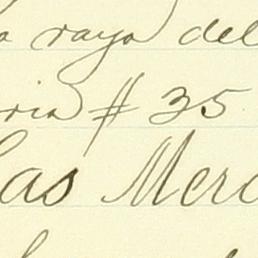 a raya del
ria # 35
las Merc